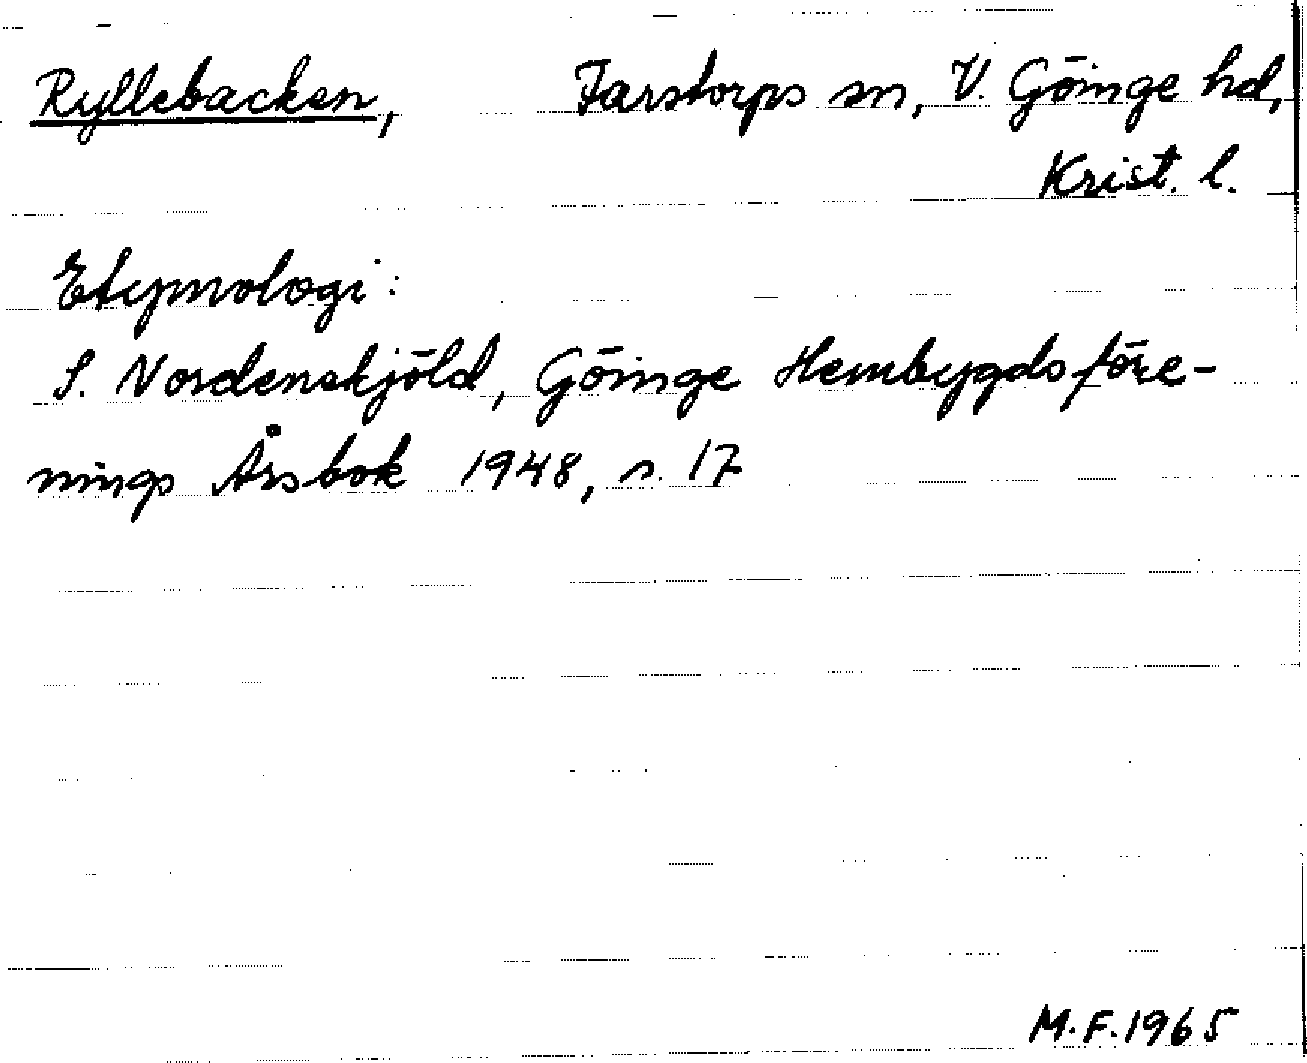 Ryllebacken, Farstorps sn, V. Göinge hd,
Krist. l.
Etymologi:
S. Nordenskjöld, Göinge Hembygdsföre-
nings Årsbok 1948, s. 17
M.F. 1965